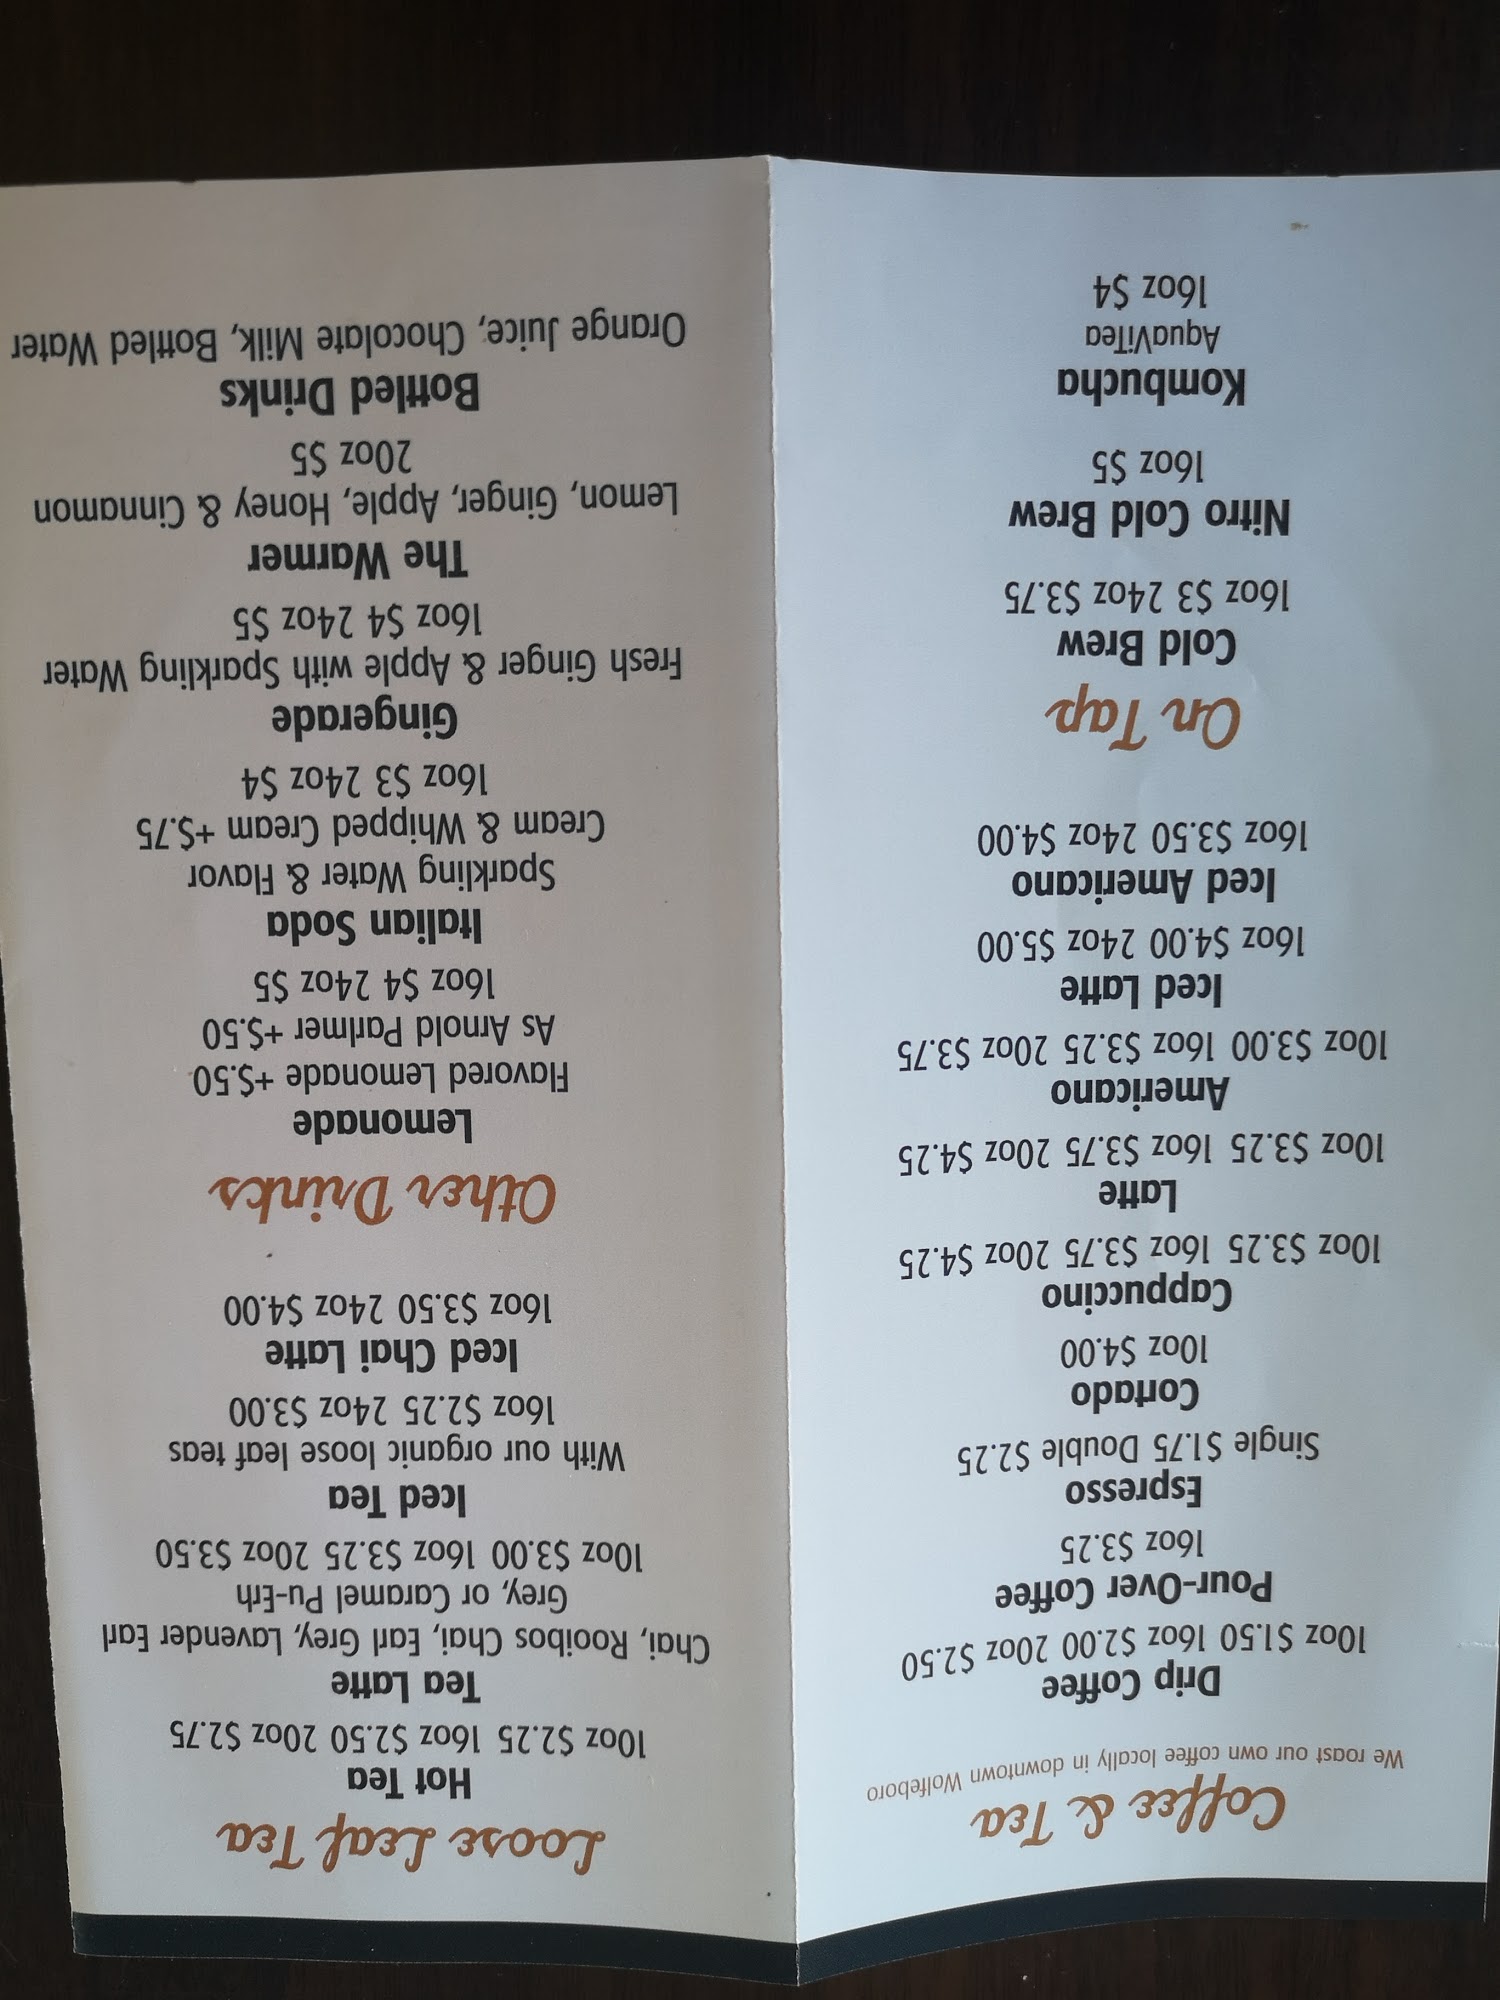 Coffee & Tea
We roast our own coffee locally in downtown Wolfeboro
Drip Coffee
10oz $1.50 16oz $2.00 20oz $2.50
Pour-Over Coffee
16oz $3.25
Espresso
Single $1.75 Double $2.25
Cortado
10oz $4.00
Cappuccino
10oz $3.25 16oz $3.75 20oz $4.25
Latte
10oz $3.25 16oz $3.75 20oz $4.25
Americano
10oz $3.00 16oz $3.25 20oz $3.75
Iced Latte
16oz $4.00 24oz $5.00
Iced Americano
16oz $3.50 24oz $4.00
On Tap
Cold Brew
16oz $3 24oz $3.75
Nitro Cold Brew
16oz $5
Kombucha
AquaViTea
16oz $4
Loose Leaf Tea
Hot Tea
10oz $2.25 16oz $2.50 20oz $2.75
Tea Latte
Chai, Rooibos Chai, Earl Grey, Lavender Earl
Grey, or Caramel Pu-Erh
10oz $3.00 16oz $3.25 20oz $3.50
Iced Tea
With our organic loose leaf teas
16oz $2.25 24oz $3.00
Iced Chai Latte
16oz $3.50 24oz $4.00
Other Drinks
Lemonade
Flavored Lemonade +$.50
As Arnold Parlmer +$.50
16oz $4 24oz $5
Italian Soda
Sparkling Water & Flavor
Cream & Whipped Cream +$.75
16oz $3 24oz $4
Gingerade
Fresh Ginger & Apple with Sparkling Water
16oz $4 24oz $5
The Warmer
Lemon, Ginger, Apple, Honey & Cinnamon
20oz $5
Bottled Drinks
Orange Juice, Chocolate Milk, Bottled Water